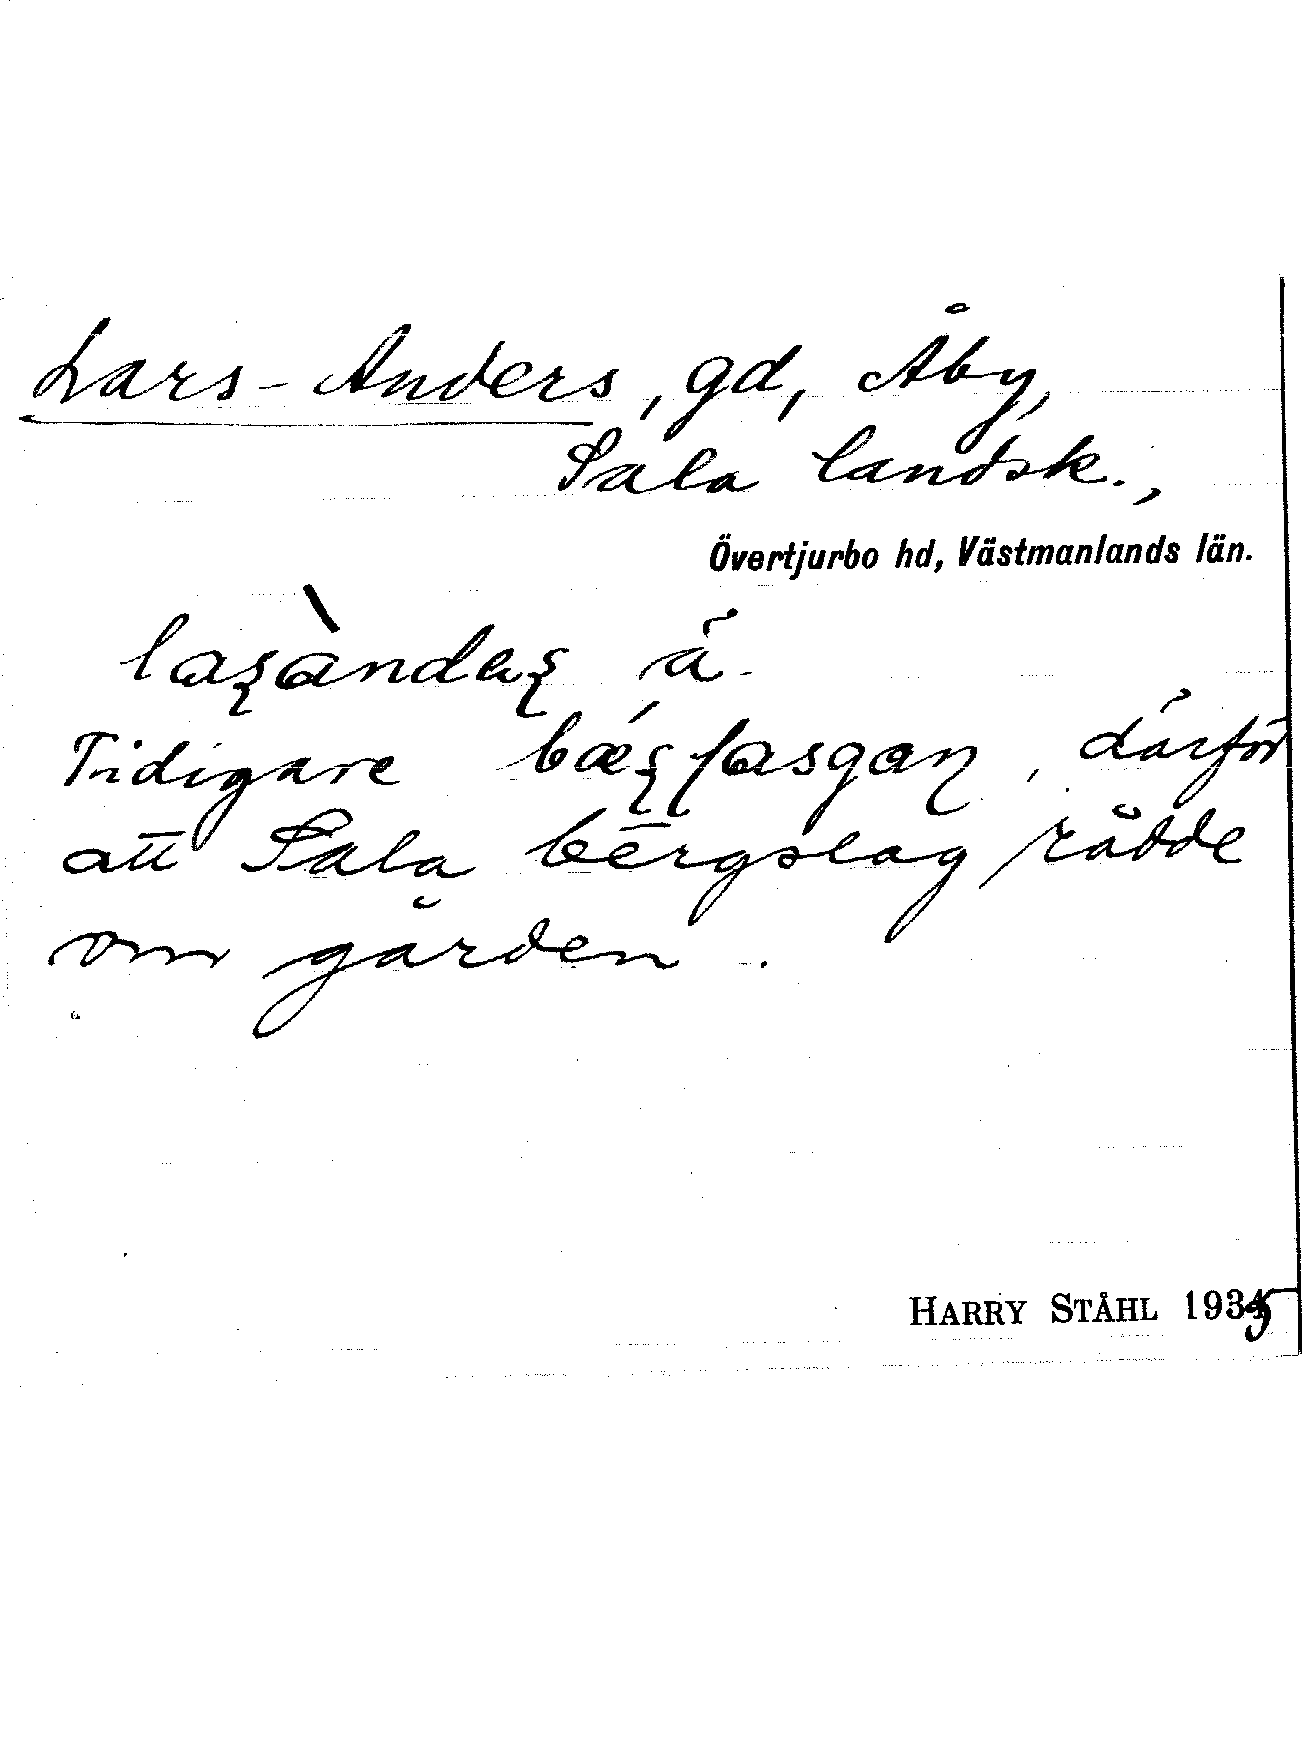 Lars-Anders, gd, Åby,
Sala landsk.,
Övertjurbo hd, Västmanlands län.
Tidigare , därför
att Sala bergslag rådde
om gården.
HARRY STÅHL 1935